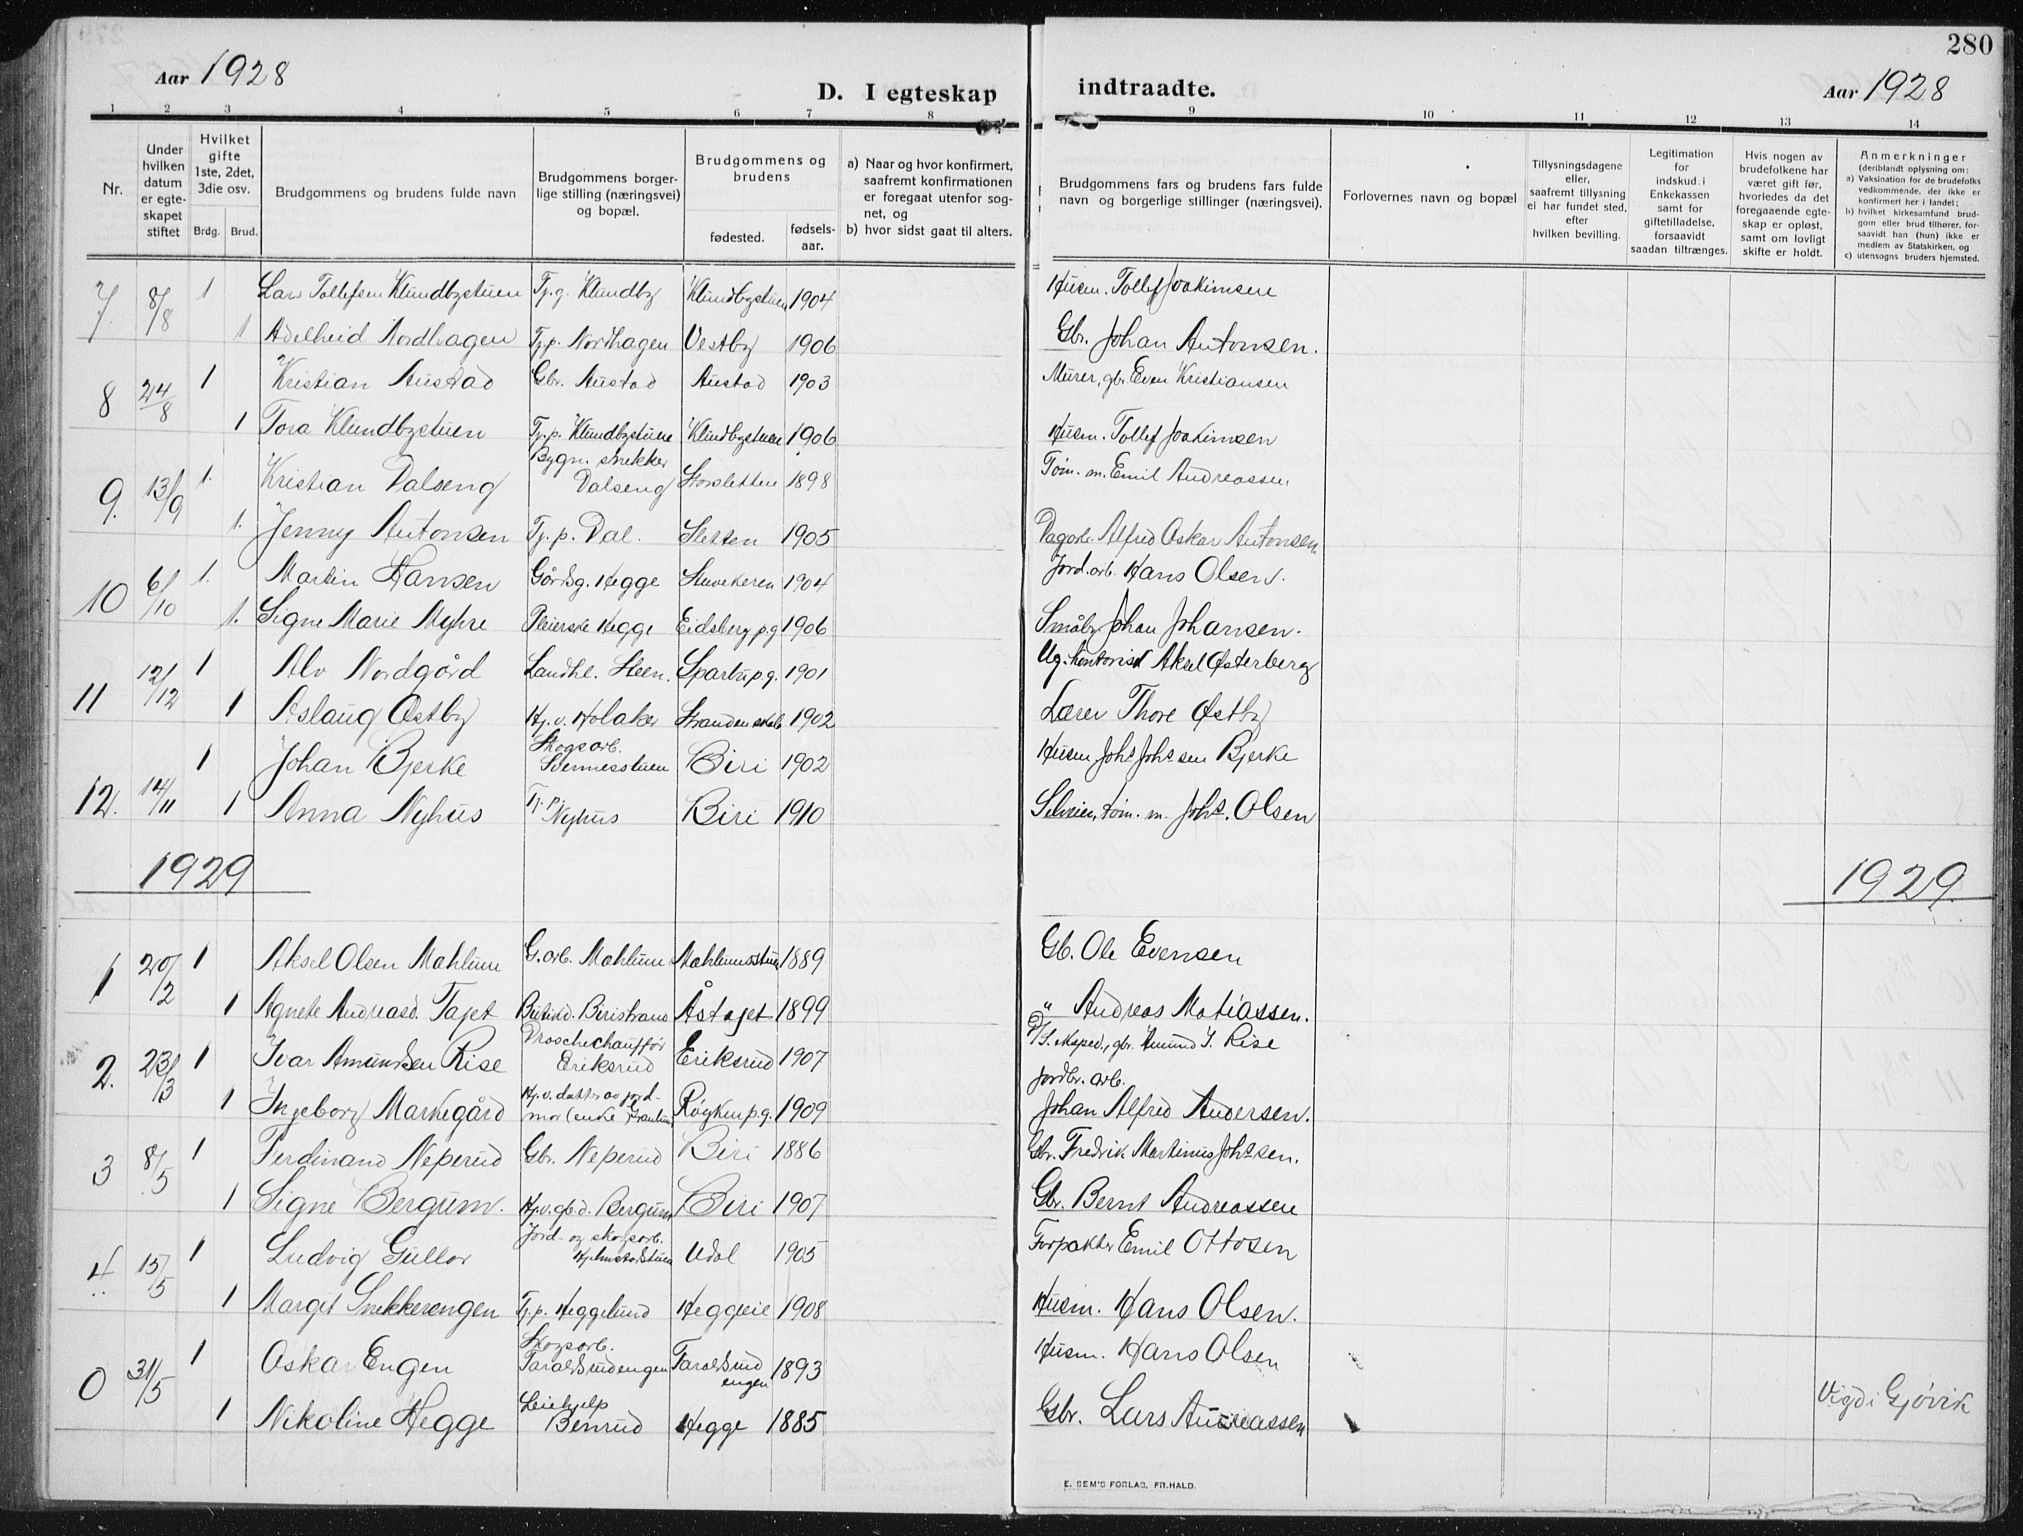 280
Aar 1928
D. I egteskap indtraadte.
Aar 1928
1 2 3 4 5 6 7 8 9 10 11 12 13 14
Nr.
Under hvilken datum er egteskapet stiftet
Hvilket gifte 1ste, 2det, 3die osv.
Brdg. Brud.
Brudgommens og brudens fulde navn
Brudgommens borgerlige stilling (næringsvei) og bopæl.
Brudgommens og brudens
fødested.
fødselsaar.
a) Naar og hvor konfirmert, saafremt konfirmationen er foregaat utenfor sognet, og
b) hvor sidst gaat til alters.
Brudgommens fars og brudens fars fulde navn og borgerlige stillinger (næringsvei).
Forlovernes navn og bopæl
Tillysningsdagene eller, saafremt tillysning ei har fundet sted, efter hvilken bevilling.
Legitimation for indskud i Enkekassen samt for giftetilladelse, forsaavidt saadan tiltrænges.
Hvis nogen av brudefolkene har været gift før, hvorledes da det foregaaende egteskap er opløst, samt om lovligt skifte er holdt.
Anmerkninger (deriblandt oplysning om:
a) Vaksination for de brudefolks vedkommende, der ikke er konfirmert her i landet;
b) hvilket kirkesamfund brudgom eller brud tilhører, forsaavidt han (hun) ikke er medlem av Statskirken, og
c) utensogns bruders hjemsted.
7 8/8 1 Lars Tollefsen Klundbystuen Tj.g. Klundby Klundbystuen 1904 Husm. Tollef Joakimsen
1 Adelheid Nordhagen Tj.p. Nordhagen Vestby 1906 Gbr. Johan Antonsen.
8 24/8 1 Kristian Austad Gbr. Austad Austad 1903 Murer, gbr. Even Kristiansen
1 Tora Klundbystuen Tj.p. Klundbystuen Klundbystuen 1906 Husm. Tollef Joakimsen
9. 13/9 1. Kristian Dalseng Bygn. snekker Dalseng Storsletten 1898 Tøm. m. Emil Andreassen
1. Jenny Antonsen Tj. p. Dal. Sletten 1905 Dagarb. Alfred Oskar Antonsen
10 6/10 1. Martin Hansen Gårdsg. Hegge 1904 Jord.arb. Hans Olsen.
1. Signe Marie Myhre Pleierske Hegge Eidsberg p.g. 1906 Småbr. Johan Johansen.
11 12/12 1 Alv Nordgård Landhl. Steen. p.g. 1901 Kontorist Aksel Østerberg
1 Aslaug Østby Hj. v. Holaker 1902 Lærer Thore Østby
12. 14/11 1 Johan Bjerke Skogsarb. Svennesstuen Biri 1902 Husm Johs Johssen Bjerke
1 Anna Nyhus Tj. p. Nyhus Biri 1910 Selveier, tøm. m. Johs. Olsen
1929 1929.
1 20/2 1 Aksel Olsen Mæhlum G.arb. Mæhlum Mæhlumsstuen 1889 Gb. Ole Evensen
1 Agnete Andreasd. Tajet Biristrand Åstajet 1899 " Andreas Matiassen.
2. 23/3 1 Ivar Amundsen Rise Droschechauffør Eriksrud Eriksrud 1907 D/S. eksped., gbr. Amund I. Rise
1 Ingeborg Markegård Hj.v. datter av jordmor (enke) Røyken p.g. 1909 Jordbr. arb. Johan Alfred Andersen.
3 8/5 1 Ferdinand Neperud Gbr. Neperud Biri 1886 Gbr. Fredrik Martinus Johssen.
1 Signe Bergum. Hj.v. gbd. Bergum Biri 1907 Gbr. Bernt Andreassen
4. 15/5 1 Ludvig Gullor Jord- og skogsarb. Hjelmstadstuen Udal 1905 Forpakter Emil Ottosen
1 Margit Snekkerengen Tj.p. Heggelund Heggeeie 1908 Husm. Hans Olsen.
0 31/5 1 Oskar Engen Skogsarb. Taraldsrudengen Taraldsrudengen 1893 Husm. Hans Olsen
1 Nikoline Hegge Leiehjelp Benrud Hegge 1885 Gbr. Lars Andreassen Vigd i Gjövik
E. SEM'S FORLAG, FR.HALD.